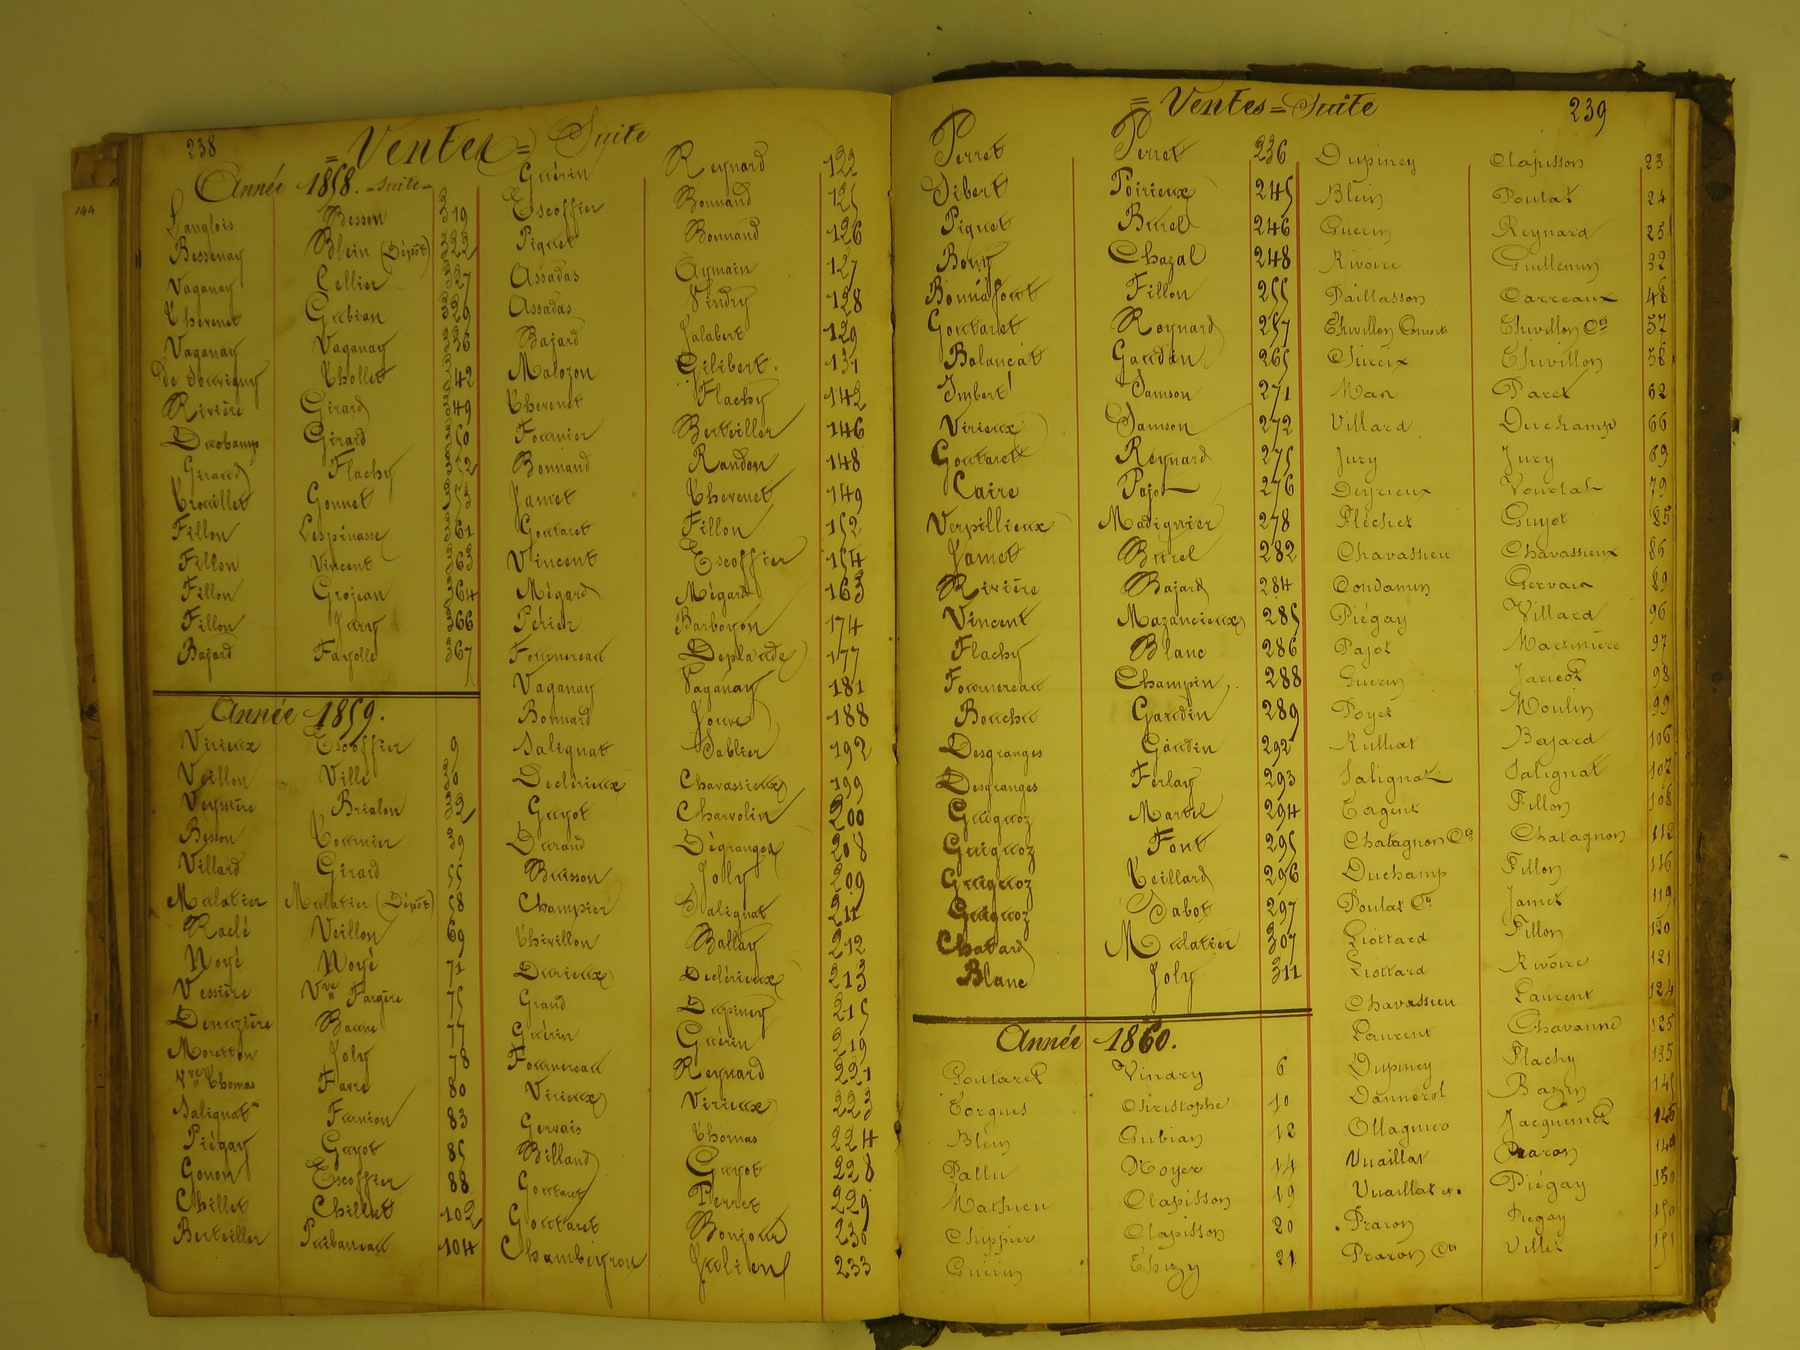 238
= Ventes = Suite
Année 1858. - Suite -
Langlois Besson 319
Bessenay Blein (Dépôt) 322
Vaganay Cellier 327
Thevenet Gubian 329
Vaganay Vaganay 336
De Souvigny Thollet 342
Rivière Girard 349
Duchamp Girard 350
Girard Flachy 352
Trouillet Gonnet 353
Fillon Lespinasse 361
Fillon Vincent 363
Fillon Grojean 364
Fillon Jury 366
Bajard Fayolle 367
Année 1859.
Virieux Escoffier 9
Veillon Ville
Veyssère Brialon 32
Besson Tournier 39
Villard Girard 55
Mulatier Mulatier (Dépôt) 58
Raclé Veillon 69
Noyé Noyé 71
Vessière Vve Fargère 75
Denuzière Baune 77
Moretton Joly 78
Vve Thomas Favre 80
Salignat Furnion 83
Piégay Guyot 85
Gonon Escoffier 88
Chillet Chillet 102
Berteiller Pubarneau 104
Guérin Reynard 122
Escoffier Bonnand 125
Piquet Bonnand 126
Assadas Aymain 127
Assadas Vindry 128
Bajard Jalabert 129
Malozon Gilibert. 131
Thevenet Flachy 142
Fournier Berteiller 146
Bonnand Randon 148
Jamet Thevenet 149
Goutaret Fillon 152
Vincent Escoffier 154
Mégard Mégard 163
Périer Barboyon 174
Fournereau Deplaude 177
Vaganay Vaganay 181
Bonnard Jouve 188
Salignat Sablier 192
Declérieux Chavassieux 199
Guyot Charvolin 200
Durand Dégranges 208
Buisson Joly 209
Champier Salignat 211
Thivillon Ballay 212
Durieux Declérieux 213
Grand Dupiney 215
Guérin Guérin 219
Fournereau Reynard 221
Virieux Virieux 223
Gervais Thomas 224
Billand Guyot 228
Goutaret Perret 229
Goutaret Bonjour 230
Chambeyron Julien 233
= Ventes = Suite
239
Perret Perret 236
Sibert Poirieux 245
Piquet Burel 246
Bony Chazal 248
Bonnafout Fillon 255
Goutaret Reynard 257
Balancat Gaudin 265
Imbert Samson 271
Virieux Samson 272
Goutaret Reynard 275
Caire Pajot 276
Verpillieux Madignier 278
Jamet Burel 282
Rivière Bajard 284
Vincent Mazancieux 285
Flachy Blanc 286
Fournereau Champin 288
Bouchu Gaudin 289
Desgranges Gaudin 292
Desgranges Ferlay 293
Guiguoz Martel 294
Guiguoz Font 295
Guiguoz Teillard 296
Guiguoz Sabot 297
Chatard Mulatier 307
Blanc Joly 311
Année 1860.
Goutaret Vindry 6
Torgues Christophe 10
Blein Gubian 12
Pallu Noyer 14
Mathieu Clapisson 19
Chippier Clapisson 20
Guérin Thizy 21
Dupiney Clapisson 23
Blein Poulat 24
Guerin Reynard 25
Rivoire Guillemin 32
Paillasson Carreaux 48
Thivillon Consorts Thivillon Cts 57
Thivillon 58
Mas Paret 62
Villard Duchamp 66
Jury Jury 69
Deyrieux 79
Fléchet Guyot 85
Chavassieu Chavassieux 86
Condamin Gervais 89
Piégay Villard 96
Pajot Martinière 97
Guerin Jaricot 98
Poyet Moulin 99
Rulliat Bajard 106
Salignat Salignat 107
Tagent Fillon 108
Chatagnon Cts Chatagnon 112
Duchamp Fillon 116
Poulat Cts Jamet 119
Liottard Fillon 120
Liottard Rivoire 121
Chavassieu Laurent 124
Laurent Chavanne 125
Dupiney Flachy 135
Dannerol Bazin 145
Ollagnier Jacquemet 146
Vuaillat Praron 149
Vuaillat Piégay 150
Praron Piégay 150
Praron Cts Villet 151
144